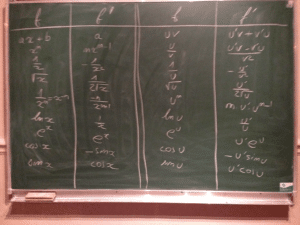 f f' f f'
ax + b a uv u'v + v'u
xⁿ nxⁿ⁻¹ u/v u'v - v'u / v²
1/x - 1/x² 1/u - u'/u²
√x 1/2√x √u u'/2√u
uⁿ n u' uⁿ⁻¹
ln x 1/x ln u u'/u
eˣ eˣ eᵘ u' eᵘ
cos x - sin x cos u - u' sin u
sin x cos x sin u u' cos u